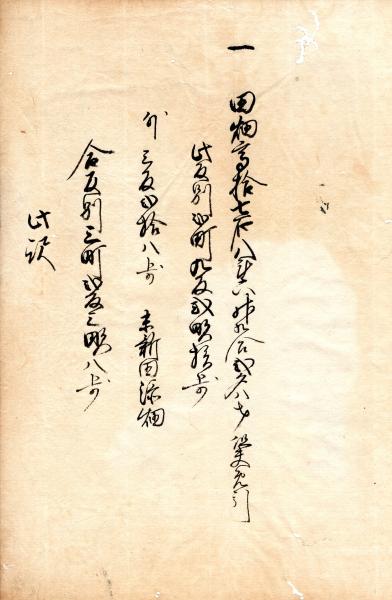 一
田畑高拾七石八斗八升九合弐夕八才
此反別弐町九反弐畝拾歩
外三反弐拾八歩 新田添畑
合反別三町弐反三畝八歩
此訳